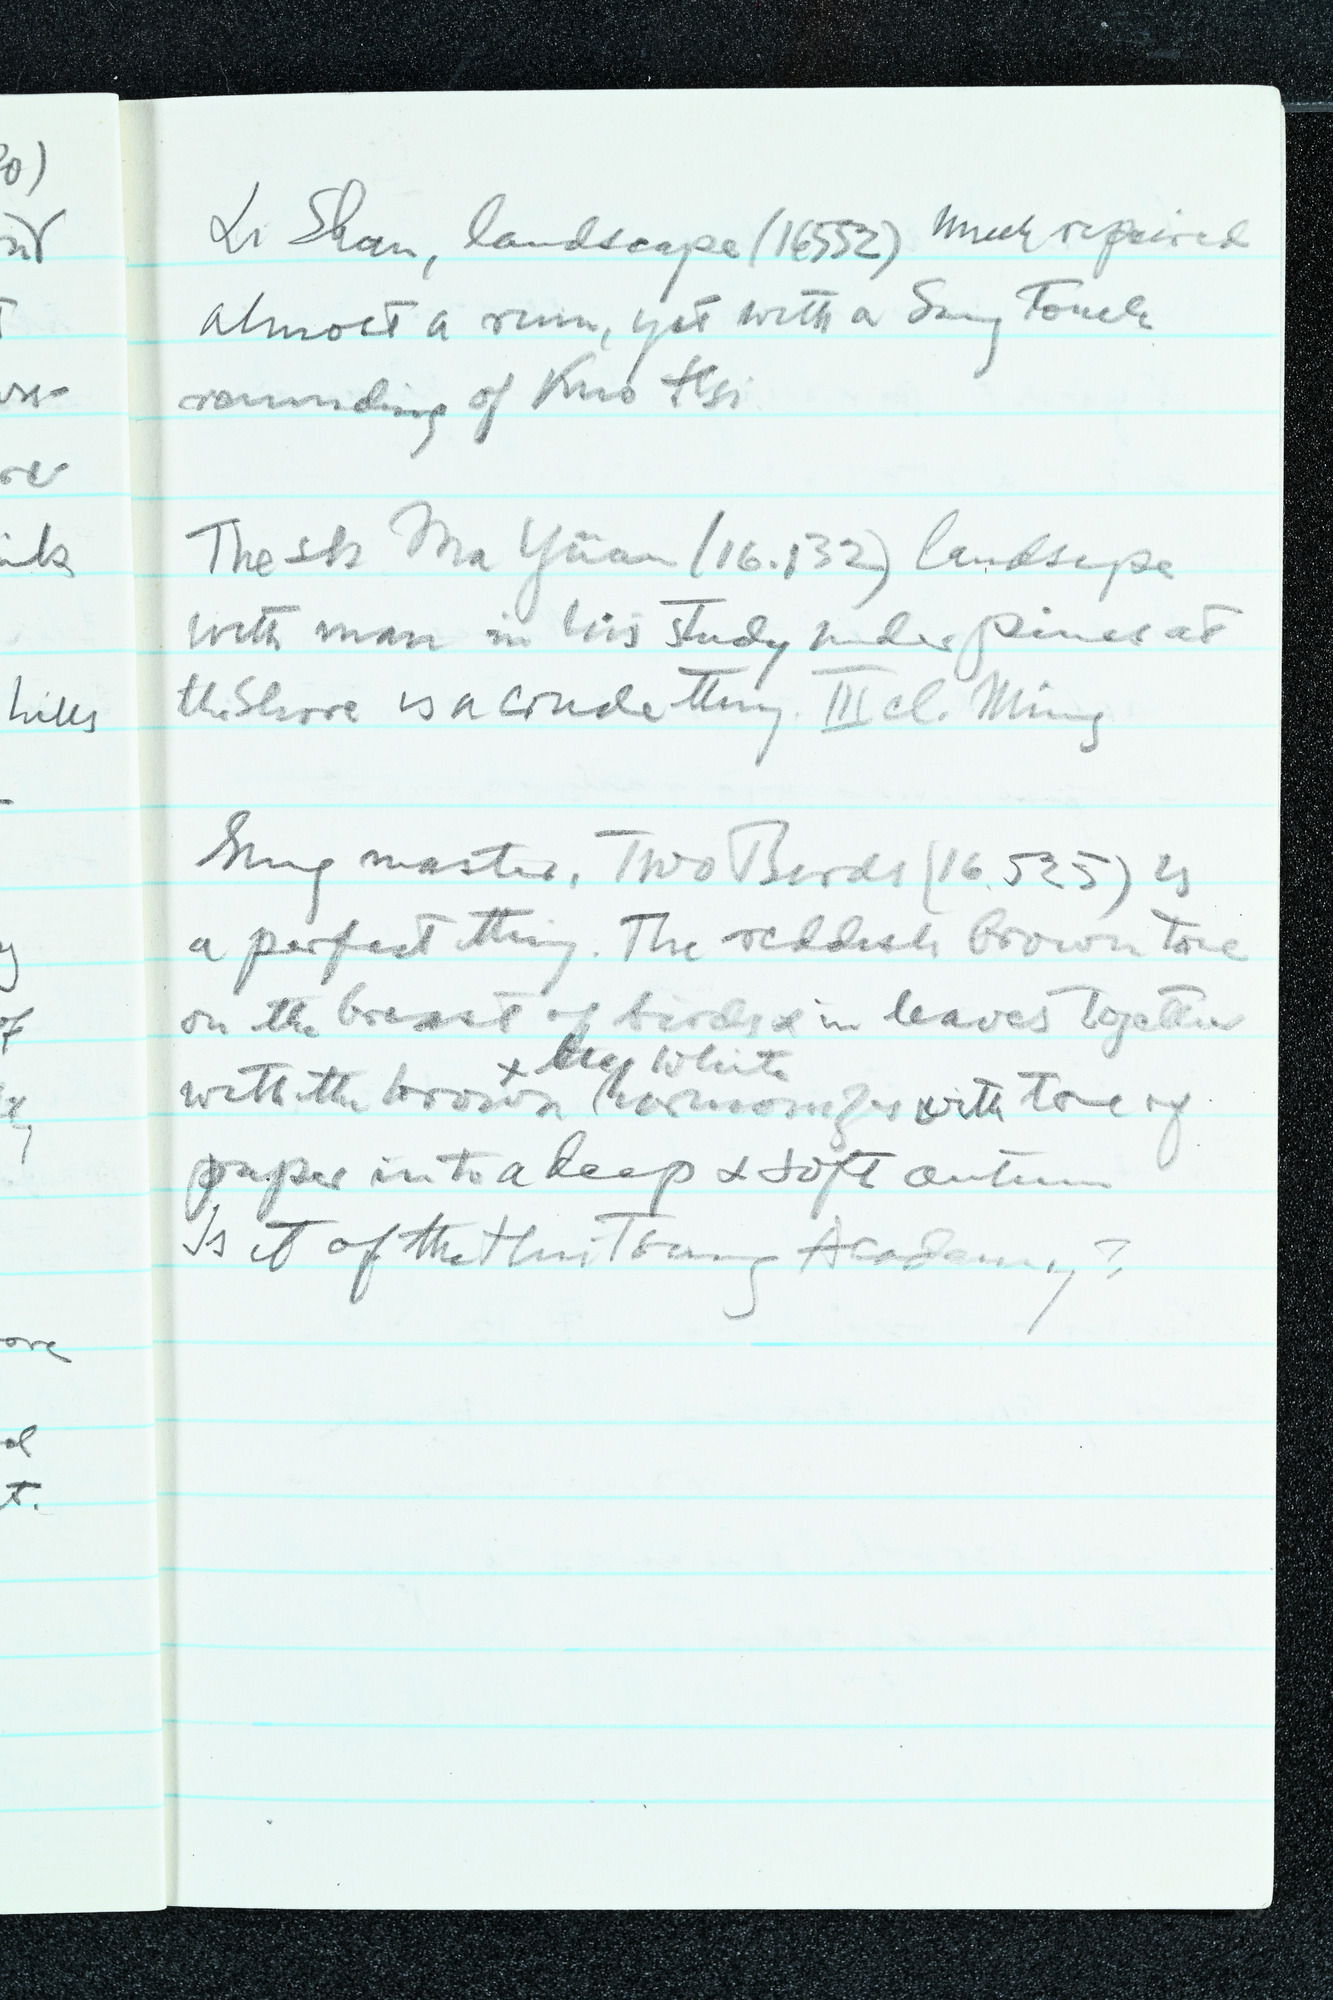 Li Shan, landscape (16552) much repaired
almost a ruin, yet with a Sung touch
rounding of Kuo Hsi
The sk Ma Yüan (16.132) landscape
with man in his study under pines at
the Shore is a crude thing. III cl. Ming
Sung master, Two Birds (16.525) is
a perfect thing. The reddish brown tone
on the breast of birds & in leaves together
+ white
with the brown harmonizes with tone of
paper into a deep & soft autumn
Is it of the Hui Tsung Academy?
hills
of